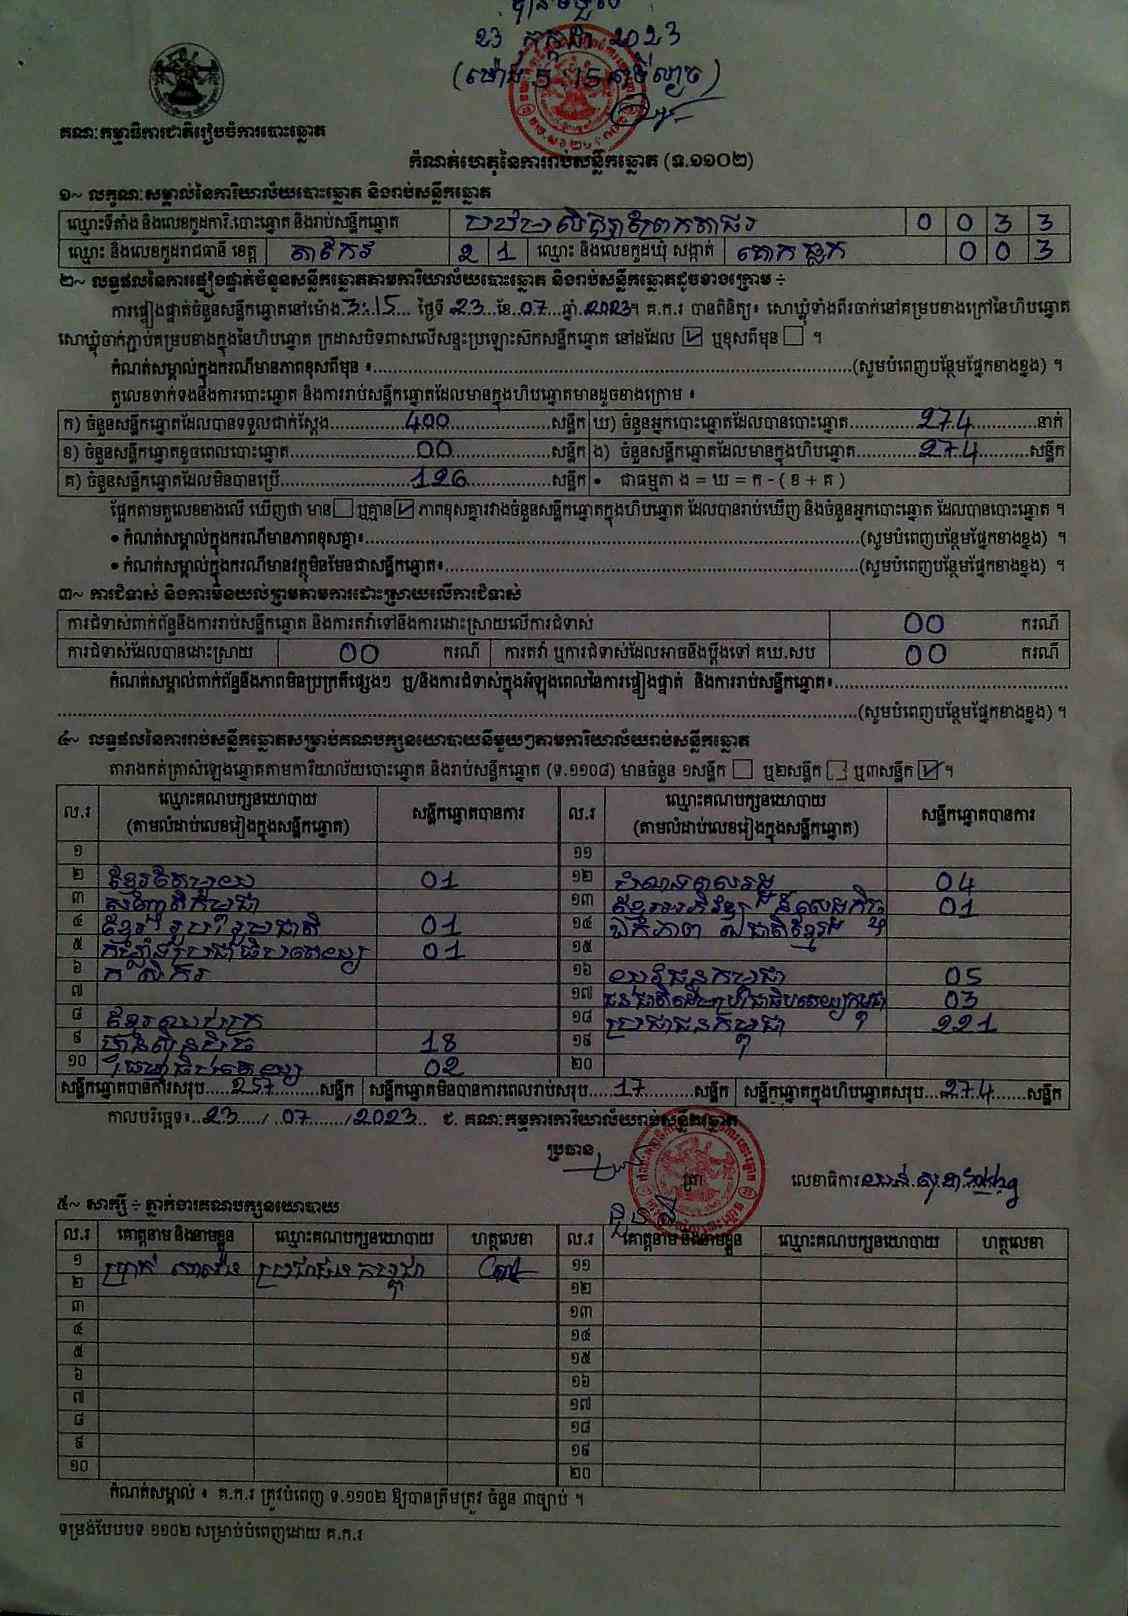 23 កក្កដា 2023
គណៈកម្មាធិការជាតិរៀបចំការបោះឆ្នោត
កំណត់ហេតុនៃការរាប់សន្លឹកឆ្នោត (ទ.១១០២)
១~ លក្ខណៈសម្គាល់នៃការិយាល័យបោះឆ្នោត និងរាប់សន្លឹកឆ្នោត
ឈ្មោះទីតាំង និងលេខកូដការិ.បោះឆ្នោត និងរាប់សន្លឹកឆ្នោត 0 0 3 3
ឈ្មោះ និងលេខកូដរាជធានី ខេត្ត តាកែវ 2 1 ឈ្មោះ និងលេខកូដឃុំ សង្កាត់ គោកធ្លក 0 0 3
២~ លទ្ធផលនៃការផ្ទៀងផ្ទាត់ចំនួនសន្លឹកឆ្នោតតាមការិយាល័យបោះឆ្នោត និងរាប់សន្លឹកឆ្នោតដូចខាងក្រោម ÷
ការផ្ទៀងផ្ទាត់ចំនួនសន្លឹកឆ្នោតនៅម៉ោង.3:15... ថ្ងៃទី .23...ខែ.07...ឆ្នាំ.2023។ គ.ក.រ បានពិនិត្យ៖ សោឃ្លុំទាំងពីរចាក់នៅគម្របខាងក្រៅនៃហិបឆ្នោត
សោឃ្លុំចាក់ភ្ជាប់គម្របខាងក្នុងនៃហិបឆ្នោត ក្រដាសបិទពាសលើសន្ទះប្រឡោះស៊កសន្លឹកឆ្នោត នៅដដែល ☑ ឬខុសពីមុន ☐ ។
កំណត់សម្គាល់ក្នុងករណីមានភាពខុសពីមុន ៖........(សូមបំពេញបន្ថែមផ្នែកខាងខ្នង) ។
តួលេខទាក់ទងនឹងការបោះឆ្នោត និងការរាប់សន្លឹកឆ្នោតដែលមានក្នុងហិបឆ្នោតមានដូចខាងក្រោម ៖
ក) ចំនួនសន្លឹកឆ្នោតដែលបានទទួលជាក់ស្តែង........400........សន្លឹក ឃ) ចំនួនអ្នកបោះឆ្នោតដែលបានបោះឆ្នោត........274........នាក់
ខ) ចំនួនសន្លឹកឆ្នោតខូចពេលបោះឆ្នោត........00........សន្លឹក ង) ចំនួនសន្លឹកឆ្នោតដែលមានក្នុងហិបឆ្នោត........274........សន្លឹក
គ) ចំនួនសន្លឹកឆ្នោតដែលមិនបានប្រើ........126........សន្លឹក • ជាធម្មតា ង = ឃ = ក - ( ខ + គ )
ផ្អែកតាមតួលេខខាងលើ ឃើញថា មាន ☐ ឬគ្មាន ☑ ភាពខុសគ្នារវាងចំនួនសន្លឹកឆ្នោតក្នុងហិបឆ្នោត ដែលបានរាប់ឃើញ និងចំនួនអ្នកបោះឆ្នោត ដែលបានបោះឆ្នោត ។
• កំណត់សម្គាល់ក្នុងករណីមានភាពខុសគ្នា៖........(សូមបំពេញបន្ថែមផ្នែកខាងខ្នង) ។
• កំណត់សម្គាល់ក្នុងករណីមានវត្ថុមិនមែនជាសន្លឹកឆ្នោត៖........(សូមបំពេញបន្ថែមផ្នែកខាងខ្នង) ។
៣~ ការជំទាស់ និងការមិនយល់ព្រមតាមការដោះស្រាយលើការជំទាស់
ការជំទាស់ពាក់ព័ន្ធនឹងការរាប់សន្លឹកឆ្នោត និងការតវ៉ាទៅនឹងការដោះស្រាយលើការជំទាស់ 00 ករណី
ការជំទាស់ដែលបានដោះស្រាយ 00 ករណី ការតវ៉ា ឬការជំទាស់ដែលអាចនឹងប្តឹងទៅ គឃ.សប 00 ករណី
កំណត់សម្គាល់ពាក់ព័ន្ធនឹងភាពមិនប្រក្រតីផ្សេងៗ ឬ/និងការជំទាស់ក្នុងអំឡុងពេលនៃការផ្ទៀងផ្ទាត់ និងការរាប់សន្លឹកឆ្នោត៖........
........(សូមបំពេញបន្ថែមផ្នែកខាងខ្នង) ។
៤~ លទ្ធផលនៃការរាប់សន្លឹកឆ្នោតសម្រាប់គណបក្សនយោបាយនីមួយៗតាមការិយាល័យរាប់សន្លឹកឆ្នោត
តារាងកត់ត្រាសំឡេងឆ្នោតតាមការិយាល័យបោះឆ្នោត និងរាប់សន្លឹកឆ្នោត (ទ.១១០៨) មានចំនួន ១សន្លឹក ☐ ឬ២សន្លឹក ☐ ឬ៣សន្លឹក ☑ ។
ល.រ ឈ្មោះគណបក្សនយោបាយ (តាមលំដាប់លេខរៀងក្នុងសន្លឹកឆ្នោត) សន្លឹកឆ្នោតបានការ ល.រ ឈ្មោះគណបក្សនយោបាយ (តាមលំដាប់លេខរៀងក្នុងសន្លឹកឆ្នោត) សន្លឹកឆ្នោតបានការ
១ ១១
២ ខ្មែរតែមួយ 01 ១២ 04
៣ សញ្ជាតិកម្ពុជា ១៣ ខ្មែរអភិវឌ្ឍន៍សេដ្ឋកិច្ច 01
៤ ខ្មែររួបរួមជាតិ 01 ១៤ ឯកភាពជាតិខ្មែរ
៥ កម្លាំងប្រជាធិបតេយ្យ 01 ១៥
៦ កសិករ ១៦ យុវជនកម្ពុជា 05
៧ ១៧ ជនជាតិដើមប្រជាធិបតេយ្យកម្ពុជា 03
៨ ខ្មែរឈប់ក្រ ១៨ ប្រជាជនកម្ពុជា 221
៩ ហ៊្វុនស៊ិនប៉ិច 18 ១៩
១០ ប្រជាធិបតេយ្យ 02 ២០
សន្លឹកឆ្នោតបានការសរុប....257....សន្លឹក សន្លឹកឆ្នោតមិនបានការពេលរាប់សរុប....17....សន្លឹក សន្លឹកឆ្នោតក្នុងហិបឆ្នោតសរុប....274....សន្លឹក
កាលបរិច្ឆេទ៖..23..../..07..../2023.. ជ. គណៈកម្មការការិយាល័យរាប់សន្លឹកឆ្នោត
ប្រធាន
លេខាធិការ
៥~ សាក្សី ÷ ភ្នាក់ងារគណបក្សនយោបាយ
ល.រ គោត្តនាម និងនាមខ្លួន ឈ្មោះគណបក្សនយោបាយ ហត្ថលេខា ល.រ គោត្តនាម និងនាមខ្លួន ឈ្មោះគណបក្សនយោបាយ ហត្ថលេខា
១ ប្រាក់ ប្រជាជនកម្ពុជា ១១
២ ១២
៣ ១៣
៤ ១៤
៥ ១៥
៦ ១៦
៧ ១៧
៨ ១៨
៩ ១៩
១០ ២០
កំណត់សម្គាល់ ៖ គ.ក.រ ត្រូវបំពេញ ទ.១១០២ ឱ្យបានត្រឹមត្រូវ ចំនួន ៣ច្បាប់ ។
ទម្រង់បែបបទ ១១០២ សម្រាប់បំពេញដោយ គ.ក.រ